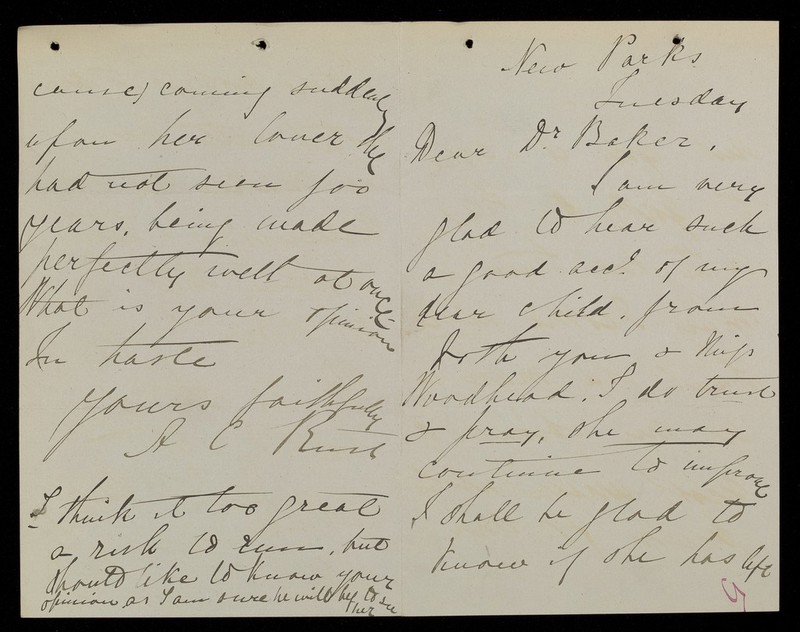 New Parks
Tuesday
Dear Dr Baker,
I am very
glad to hear such
a good acct. of my
dear child, from
both you & Miss
Woodhead. I do trust
& pray, she may
continue to improve
I shall be glad to
know if she has left
cause) coming suddenly
upon her lover she
had not seen for
years, being made
perfectly well at once
What is your opinion
In haste
Yours faithfully
A C
I think it too great
a risk to run, but
should like to know your
opinion as I am sure he will to see
her